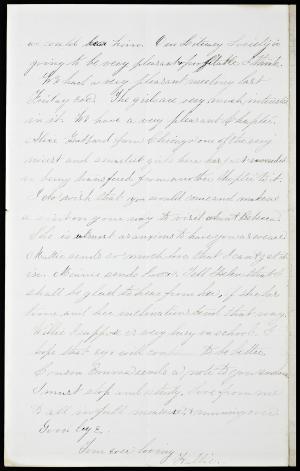 we could hear him. Our Literary Society is
going to be very pleasant & profitable I think.
We had a very pleasant meeting last
Friday eve. The girls are very much interested
in it. We have a very pleasant Chaplain
Alice Gaffard from Chicago one of the very
nicest and smartest girls here has just succeeded
in being transfered from another Chaplain to it.
I do wish that you could come and make us
a visit on your way to visit
She is almost as anxious to have you as we are.
Mattie sends so much love that I can't get it
in. Minnie sends love. Tell Helen that I
shall be glad to hear from her, if she has
time and her inclination tend that way.
Willie I suppose is very busy in school. I
hope that eyes will continue to be better.
Cousin Emma sends a note to you
I must stop and study. Love from me
to all in full measure & running over
Good bye.
Your ever loving